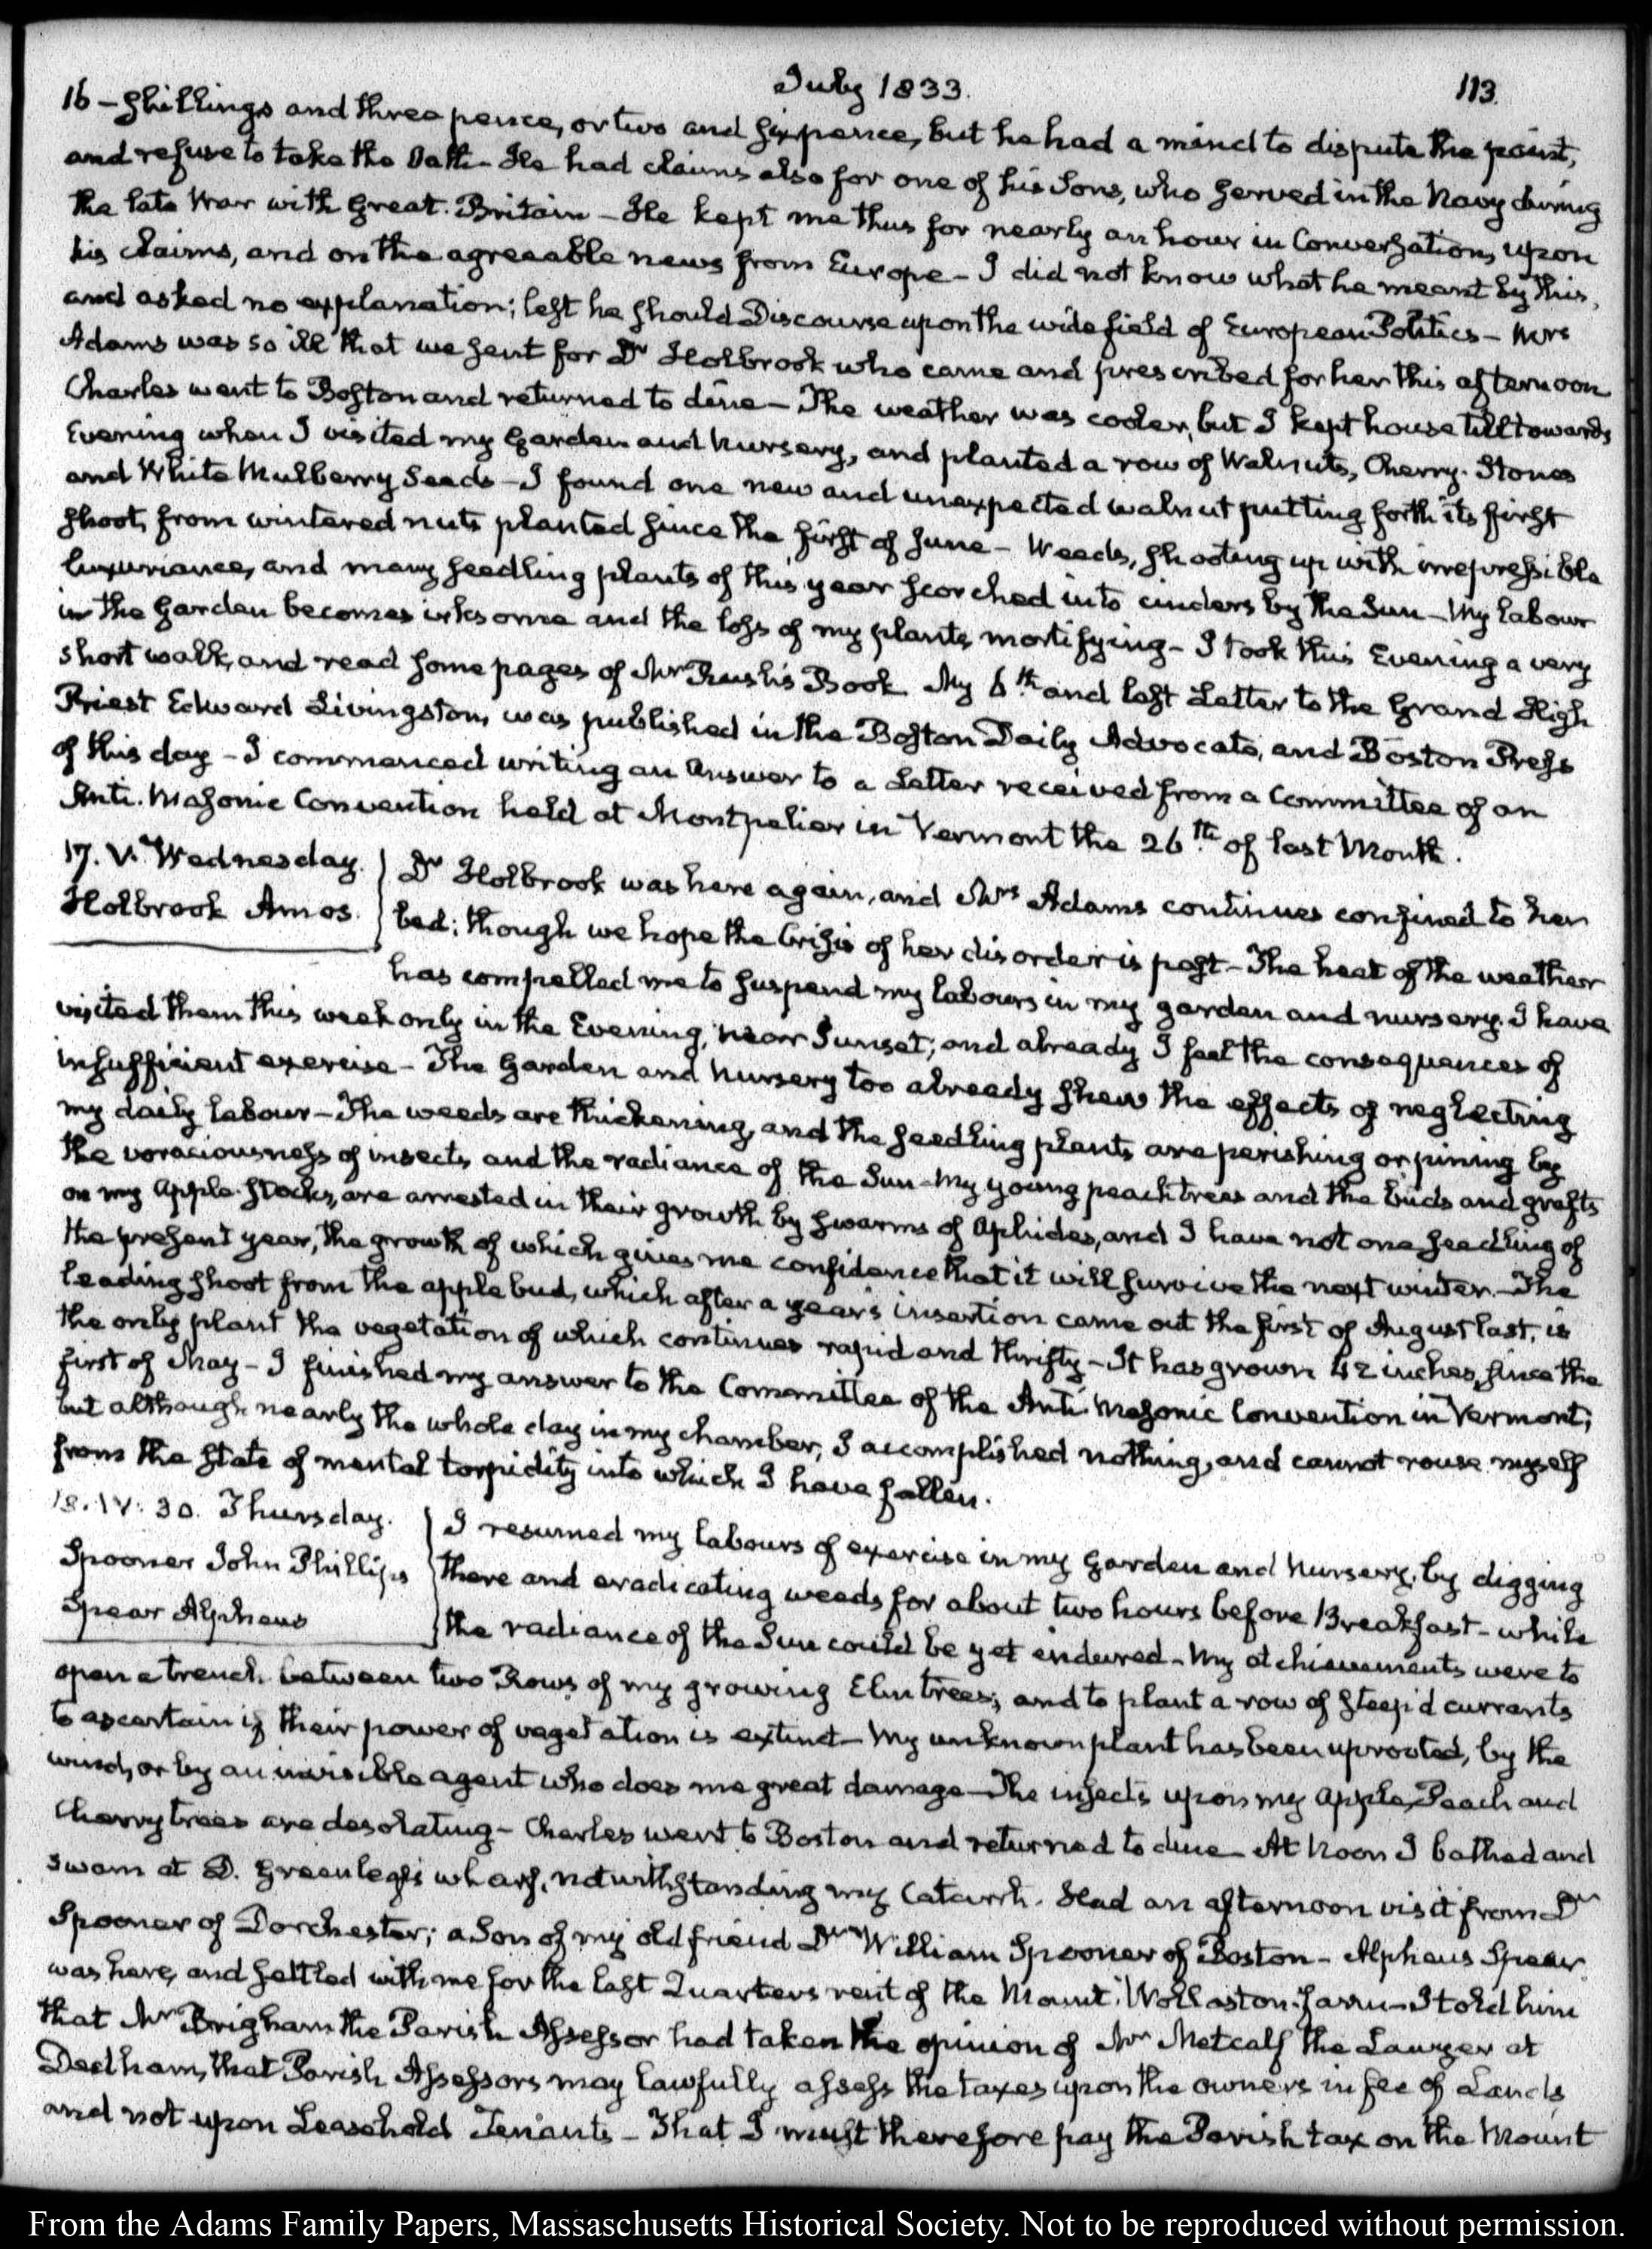 July 1833.
113.
16 – Shillings and three pence, or two and sixpence, but he had a mind to dispute the point,
and refuse to take the Oath – He had claims also for one of his Sons, who served in the Navy during
the late War with Great Britain – He kept me thus for nearly an hour in Conversation, upon
his claims, and on the agreeable news from Europe – I did not know what he meant by this,
and asked no explanation; lest he should Discourse upon the wide field of European Politics – Mrs
Adams was so ill that we sent for Dr Holbrook who came and prescribed for her this afternoon
Charles went to Boston and returned to dine – The weather was cooler, but I kept house till towards
Evening when I visited my Garden and Nursery, and planted a row of Walnuts, Cherry-Stones
and White Mulberry Seeds – I found one new and unexpected walnut putting forth its first
shoot, from wintered nuts planted since the first of June – Weeds, shooting up with irrepressible
luxuriance, and many seedling plants of this year scorched into cinders by the Sun – My labour
in the Garden becomes irksome and the loss of my plants mortifying – I took this Evening a very
short walk, and read some pages of Mr Rush's Book My 6th and last Letter to the Grand High
Priest Edward Livingston, was published in the Boston Daily Advocate, and Boston Press
of this day – I commenced writing an Answer to a Letter received from a Committee of an
Anti-Masonic Convention held at Montpelier in Vermont the 26th of last Month.
17. V. Wednesday.
Holbrook Amos.
Dr Holbrook was here again, and Mrs Adams continues confined to her
bed; though we hope the Crisis of her disorder is past – The heat of the weather
has compelled me to suspend my labours in my garden and nursery. I have
visited them this week only in the Evening, near Sunset; and already I feel the consequences of
insufficient exercise – The Garden and Nursery too already shew the effects of neglecting
my daily labour – The weeds are thickening, and the seedling plants are perishing or pining by
the voraciousness of insects, and the radiance of the Sun – My young peach trees and the buds and grafts
on my Apple-Stocks, are arrested in their growth by swarms of Aphides, and I have not one seedling of
the present year, the growth of which gives me confidence that it will survive the next winter. – The
leading shoot from the apple bud, which after a year's insertion came out the first of August last, is
the only plant the vegetation of which continues rapid and thrifty – It has grown 42 inches, since the
first of May – I finished my answer to the Committee of the Anti-Masonic Convention in Vermont;
but although nearly the whole day in my chamber, I accomplished nothing, and cannot rouse myself
from the state of mental torpidity into which I have fallen.
18. IV: 30. Thursday.
Spooner John Phillips
Spear Alpheus
I resumed my labours of exercise in my Garden and Nursery, by digging
there and eradicating weeds for about two hours before Breakfast – while
the radiance of the Sun could be yet endured – My atchievements were to
open a trench between two Rows of my growing Elm trees; and to plant a row of steep'd currants
to ascertain if their power of vegetation is extinct – My unknown plant has been uprooted, by the
wind, or by an invisible agent who does me great damage – The insects upon my Apple, Peach and
Cherry trees are desolating – Charles went to Boston and returned to dine – At Noon I bathed and
swam at D. Greenleaf's wharf, notwithstanding my Catarrh. Had an afternoon visit from Dr
Spooner of Dorchester; a Son of my old friend Dr William Spooner of Boston – Alpheus Spear
was here, and settled with me for the last Quarters rent of the Mount-Wollaston-farm – I told him
that Mr Brigham the Parish Assessor had taken the opinion of Mr Metcalf the Lawyer at
Dedham, that Parish Assessors may lawfully assess the taxes upon the owners in fee of Lands
and not upon Leasehold Tenants – That I must therefore pay the Parish tax on the Mount
From the Adams Family Papers, Massachusetts Historical Society. Not to be reproduced without permission.